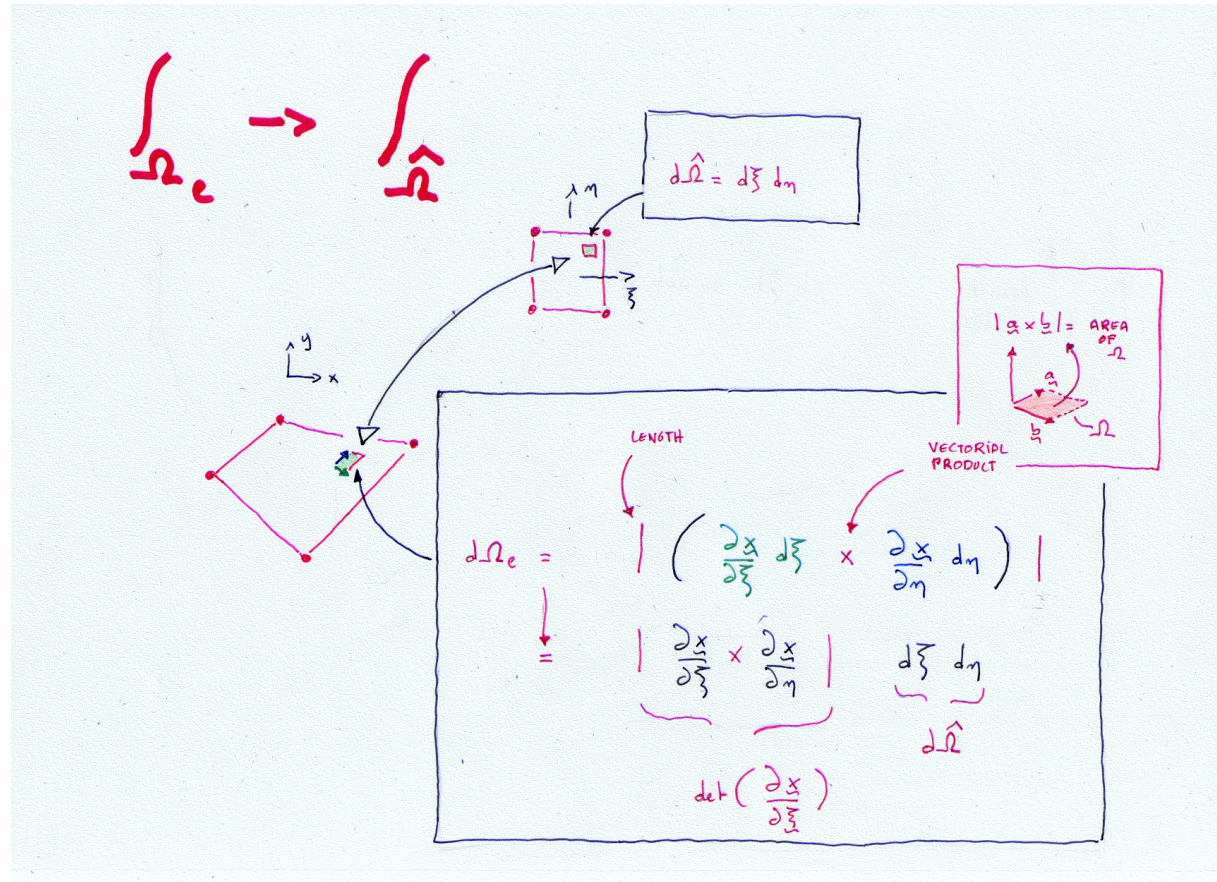 ∫_Ω_e → ∫_Ω̂
dΩ̂ = dξ dη
η
ξ
y
x
|a̰ × b̰| = AREA
OF
Ω
a̰
b̰
Ω
LENGTH
VECTORIAL
PRODUCT
dΩ_e = | ( ∂x̰/∂ξ dξ × ∂x̰/∂η dη ) |
= | ∂x̰/∂ξ × ∂x̰/∂η | dξ dη
dΩ̂
det ( ∂x̰/∂ξ̰ )